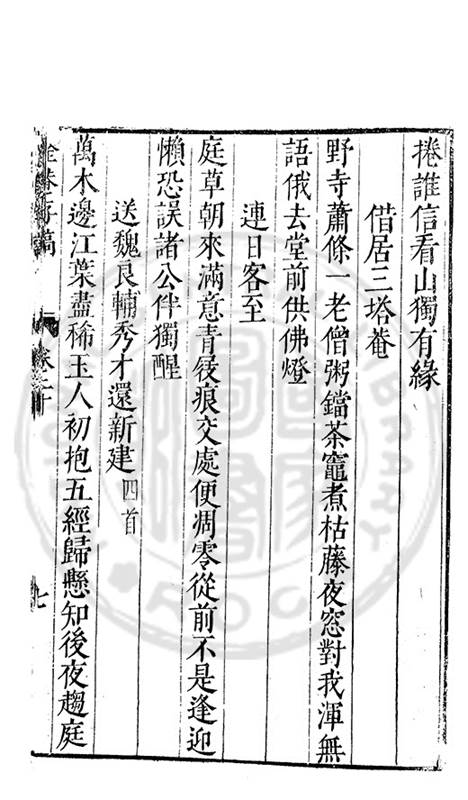 捲誰信看山獨有緣
借居三塔菴
野寺蕭條一老僧粥鐺茶竈煮枯藤夜窓對我渾無
語俄去堂前供佛燈
連日客至
庭草朝來滿意青屐痕交處便凋零從前不是逢迎
懶恐誤諸公伴獨醒
送魏良輔秀才還新建四首
萬木邊江葉盡稀玉人初抱五經歸懸知後夜趨庭
七